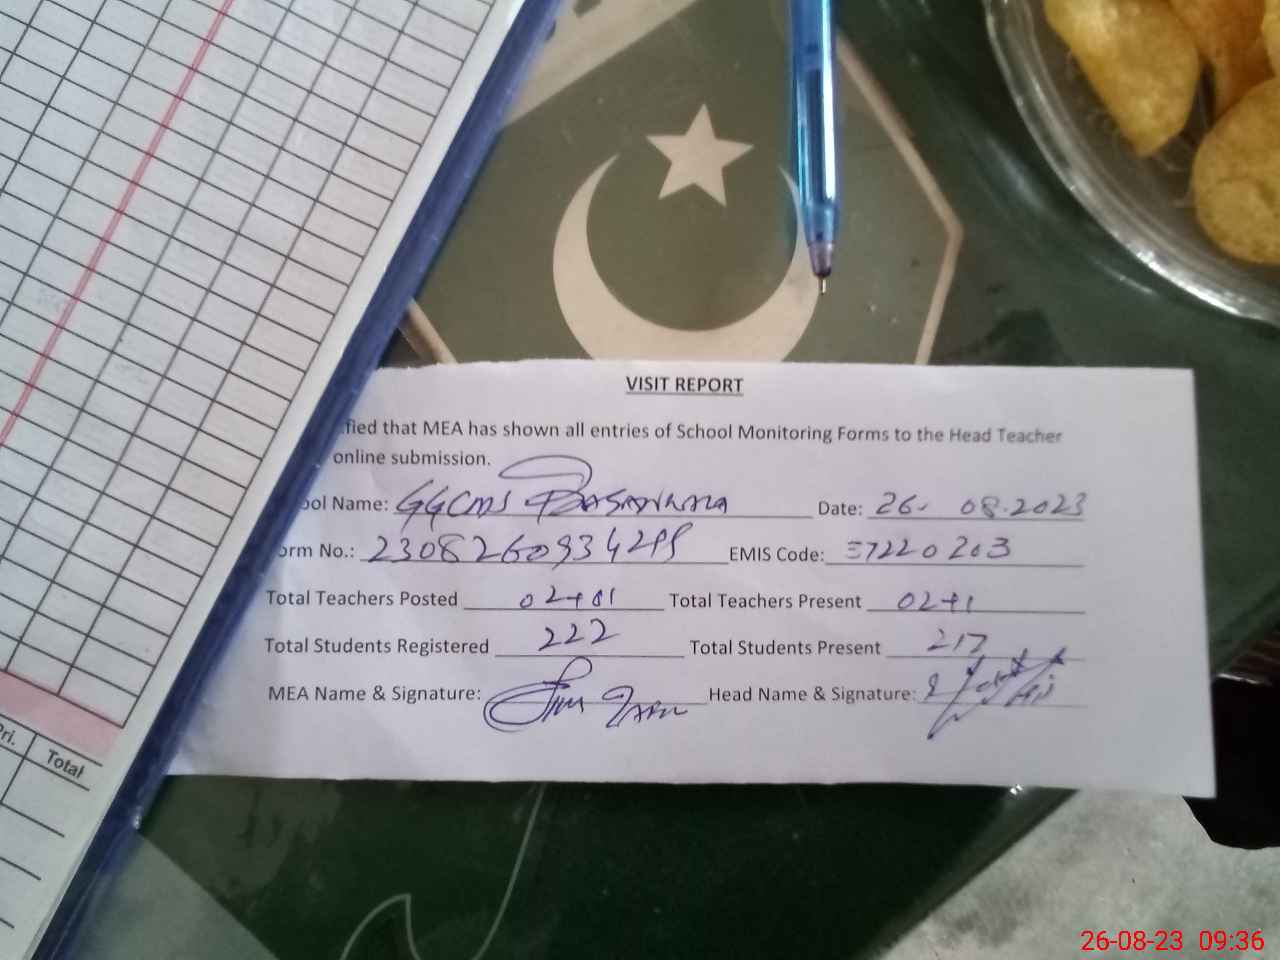 VISIT REPORT
fied that MEA has shown all entries of School Monitoring Forms to the Head Teacher
online submission.
ool Name: GGCMS Date: 26. 08.2023
orm No.: EMIS Code: 37220203
Total Teachers Posted 02+01 Total Teachers Present 02+1
Total Students Registered 222 Total Students Present 217
MEA Name & Signature: Head Name & Signature:
Pri. Total
26-08-23 09:36